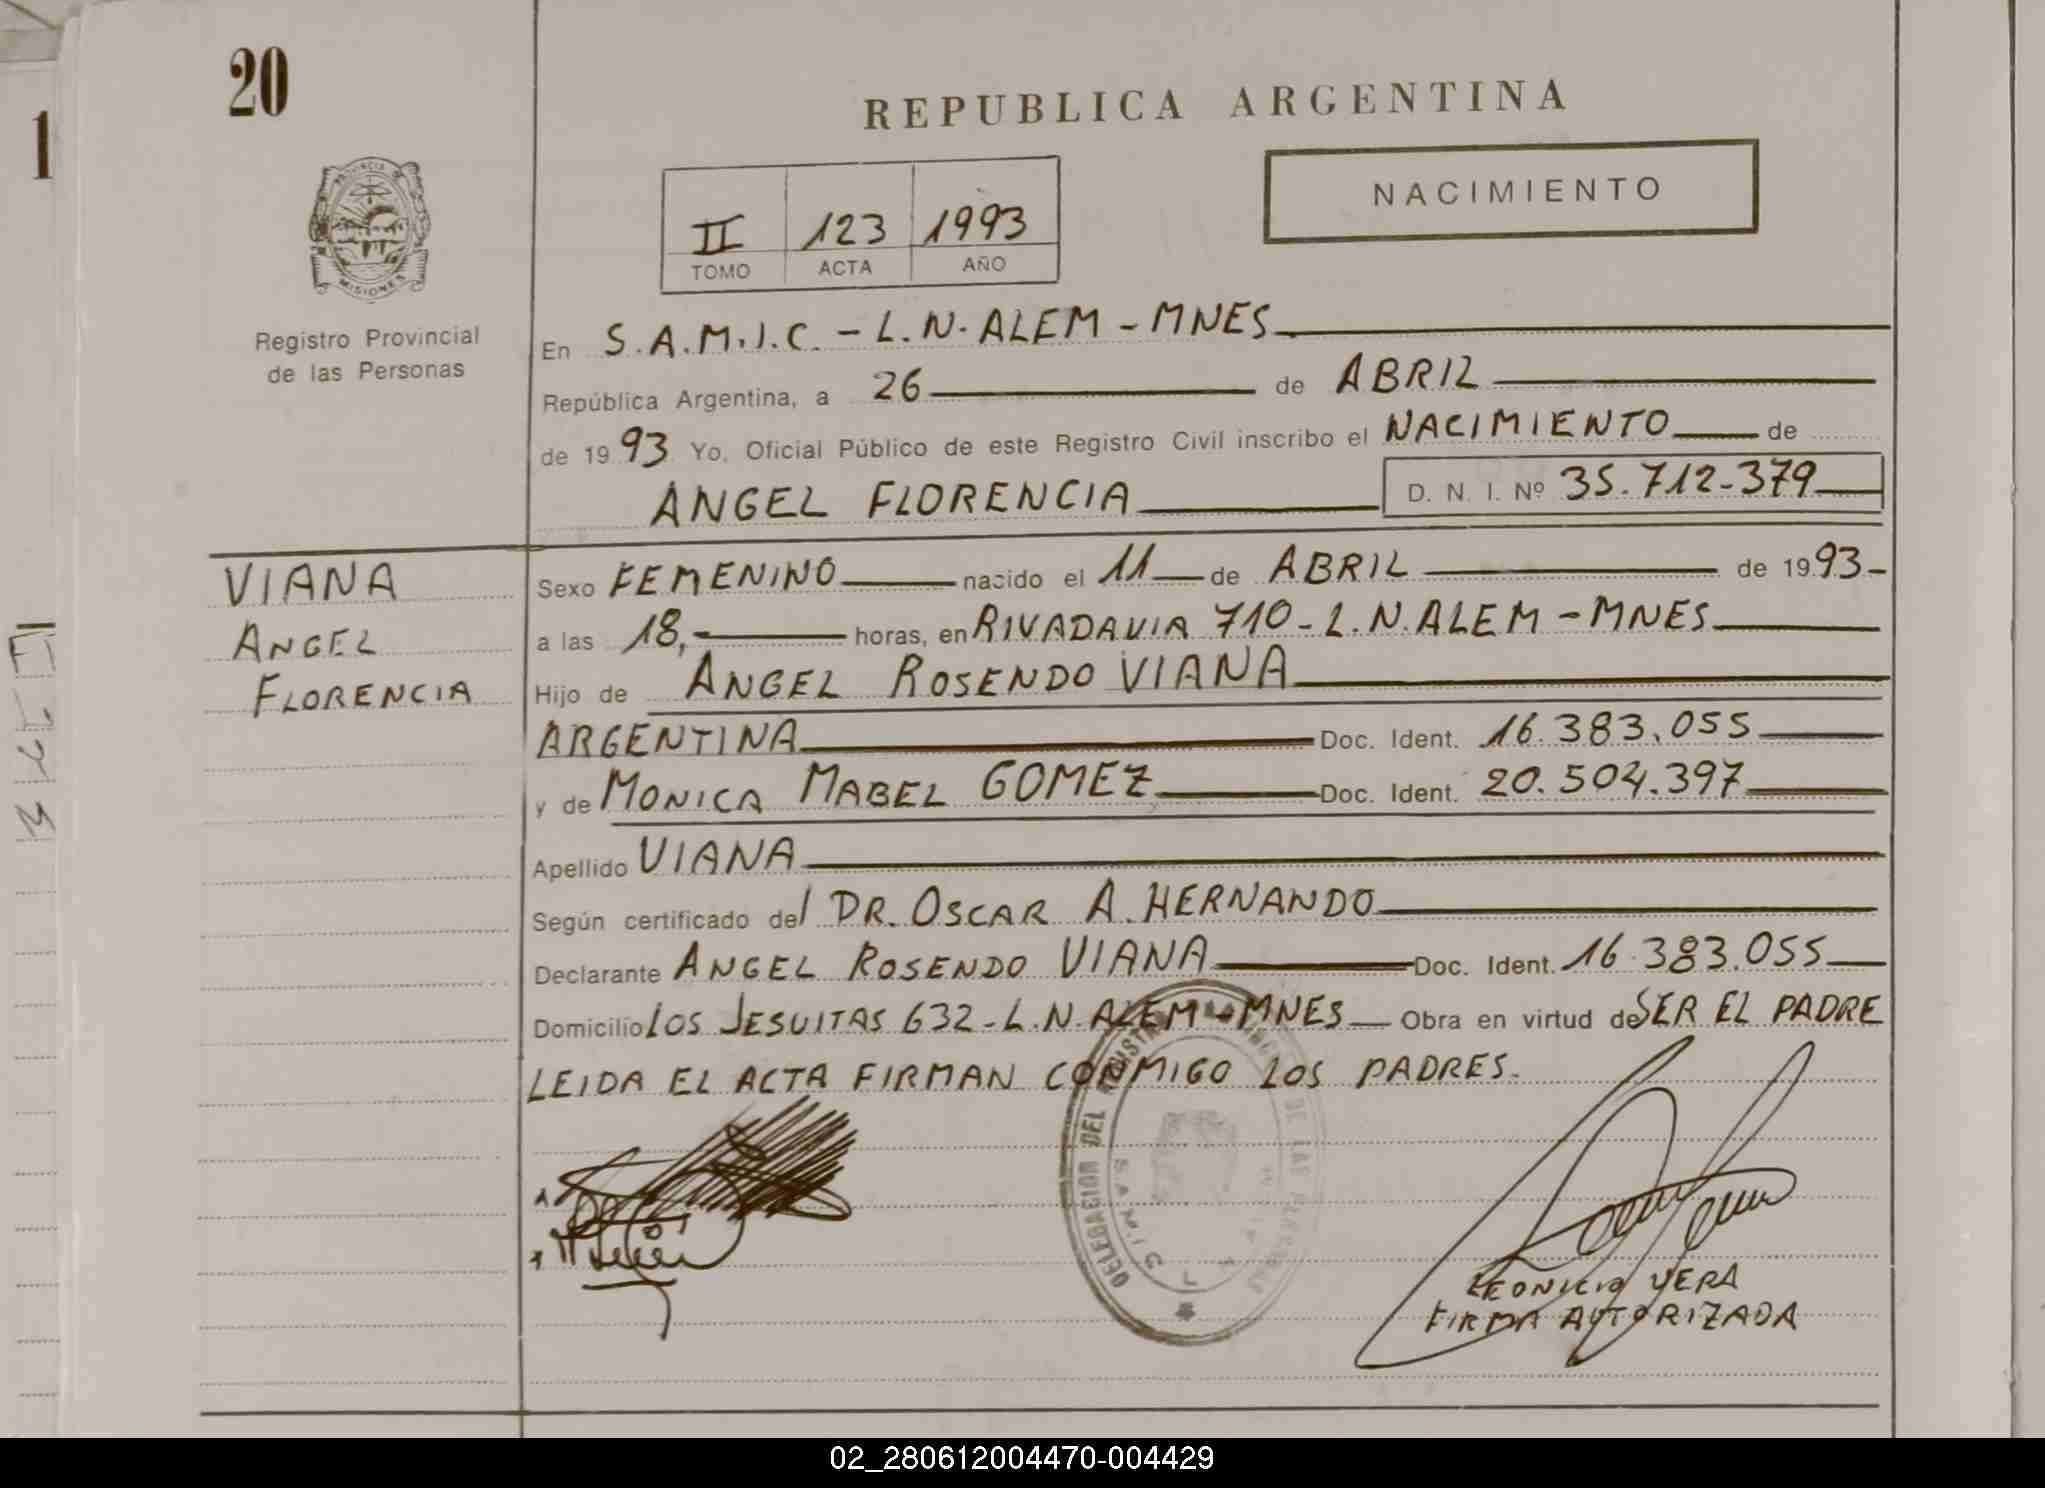 20
1
REPUBLICA ARGENTINA
PROVINCIA DE
MISIONES
Registro Provincial
de las Personas
II 123 1993
TOMO ACTA AÑO
NACIMIENTO
En S.A.M.I.C. - L.N. ALEM - MNES
República Argentina, a 26 de ABRIL
de 1993 Yo, Oficial Público de este Registro Civil inscribo el NACIMIENTO de
ANGEL FLORENCIA D. N. I. Nº 35.712-379
VIANA
ANGEL
FLORENCIA
Sexo FEMENINO nacido el 11 de ABRIL de 1993-
a las 18,- horas, en RIVADAVIA 710 - L.N. ALEM - MNES
Hijo de ANGEL ROSENDO VIANA
ARGENTINA Doc. Ident. 16.383.055
y de MONICA MABEL GOMEZ Doc. Ident. 20.504.397
Apellido VIANA
Según certificado del DR. OSCAR A. HERNANDO
Declarante ANGEL ROSENDO VIANA Doc. Ident. 16.383.055
Domicilio LOS JESUITAS 632 - L.N. ALEM - MNES Obra en virtud de SER EL PADRE
LEIDA EL ACTA FIRMAN CONMIGO LOS PADRES.
DELEGACION DEL REGISTRO DE LAS PERSONAS
LEONICIO VERA
FIRMA AUTORIZADA
02_280612004470-004429